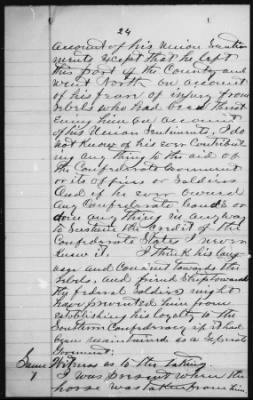 24
account of his Union Senti
ments except that he left
this part of the County and
went North on account
of his fear of injury from
Rebels who had been threat
ening him on account
of his Union Sentiments, I do
not know of his ever Contribut
ing any thing to the aid of
the Confederate Government
or its Officers or Soldiers
And if he ever owned
any Confederate bonds or
done any thing in any way
to Sustain the Credit of the
Confederate States I never
knew it. I think his lang
uage and Conduct towards the
Rebels, and friendship toward
the federal Soldiers might
have prevented him from
establishing his loyalty to the
Southern Confederacy if it had
been maintained as a Seperate
Government;
Same Witness as to the taking
1 I was present when the
horse was taken from him,